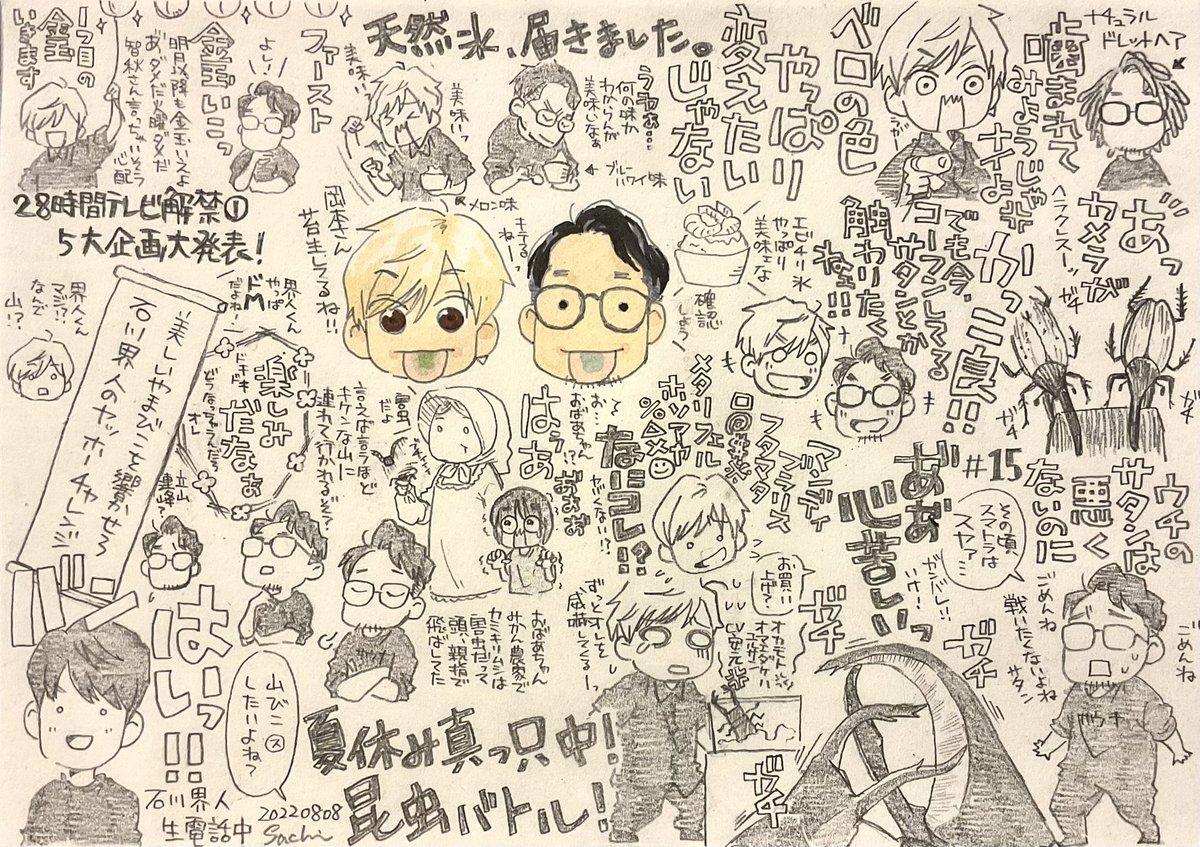 1つ目の
金玉
いきます
よし!
金玉いこっ
明日以降も金玉いえるよ
あ、ダメだ火曜がダメだ
智秋さん言っちゃいそう
心配
ファースト
美味い
美味いっ
天然氷、届きました。
メロン味
うわぁ…
何の味か
わからんが
美味いなぁ
ブルー
ハワイ味
やっぱり
変えたい
じゃない
ベロの色
ナチュラル
ドレットヘア
歯まれて
みょうじゃ
ナイよ
28時間テレビ解禁①
5大企画大発表!
岡本さん
苦主してるね!!
キテるっ
ねーっ
エビチリ氷
やっぱり
美味ェな
確認
しよう
でも今、
コーフンしてる
サタンとか
触わりたく
ねェ!!!
カっ
三良!!!
あっ
ヤメラが
ヘラクレスーッ
ガチ
ガチ
界人くん
マジ!?
なんで
山!?
石川界人のヤッホーチャレンジ
美しいやまびこを響かせろ
界人くん
やっぱ
ドM
だよね
楽しみ
だなぁ
ドキドキ
立山
連峰?
言えば言うほど
キケンな山に
連れて行かれるぞ?
害虫
だよ
はぅ、
はぁ
お…
おばあちゃん
おぉぉ
なにコレ!?
ヤバくない!?
メタリフェル
ホソアカ
%△×☺
フタマタ
□@#※
マンディ
ブラリス
#15
あぁ
心苦しいっ
ウチの
サタンは
悪く
ないのに
その頃、
スマトラは
スヤァ…
ガンバレ!!
いけ!
ごめんね
戦いたくないよね
サタン
ごめんね
お買い
上げ?
ガチ
ガチ
ガチ
ずっとオレを
威嚇してくるーっ
おばあちゃん
みかん農家で
害虫だって
カミキリムシは
頭、親指で
飛ばしてた
はいっ!!
山びこ㋜
したいよね?
石川界人
生電話中
20220808
Sachi
夏休み真っ只中!
昆虫バトル!